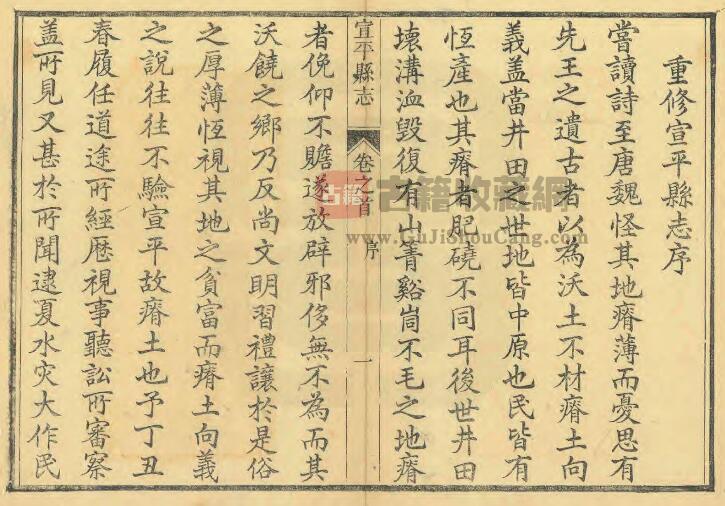 重修宣平縣志序
嘗讀詩至唐魏怪其地瘠薄而憂思有
先王之遺古者以為沃土不材瘠土向
義盖當井田之世地皆中原也民皆有
恆產也其瘠者肥磽不同耳後世井田
壞溝洫毀復有山菁谿峝不毛之地瘠
宣平縣志 卷之首 序 一
者俛仰不贍遂放辟邪侈無不為而其
沃饒之鄉乃反尚文明習禮讓於是俗
之厚薄恆視其地之貧富而瘠土向義
之說往往不驗宣平故瘠土也予丁丑
春履任道途所經歷視事聽訟所審察
盖所見又甚於所聞逮夏水灾大作民
古籍 古籍收藏網
www.GuJiShouCang.com